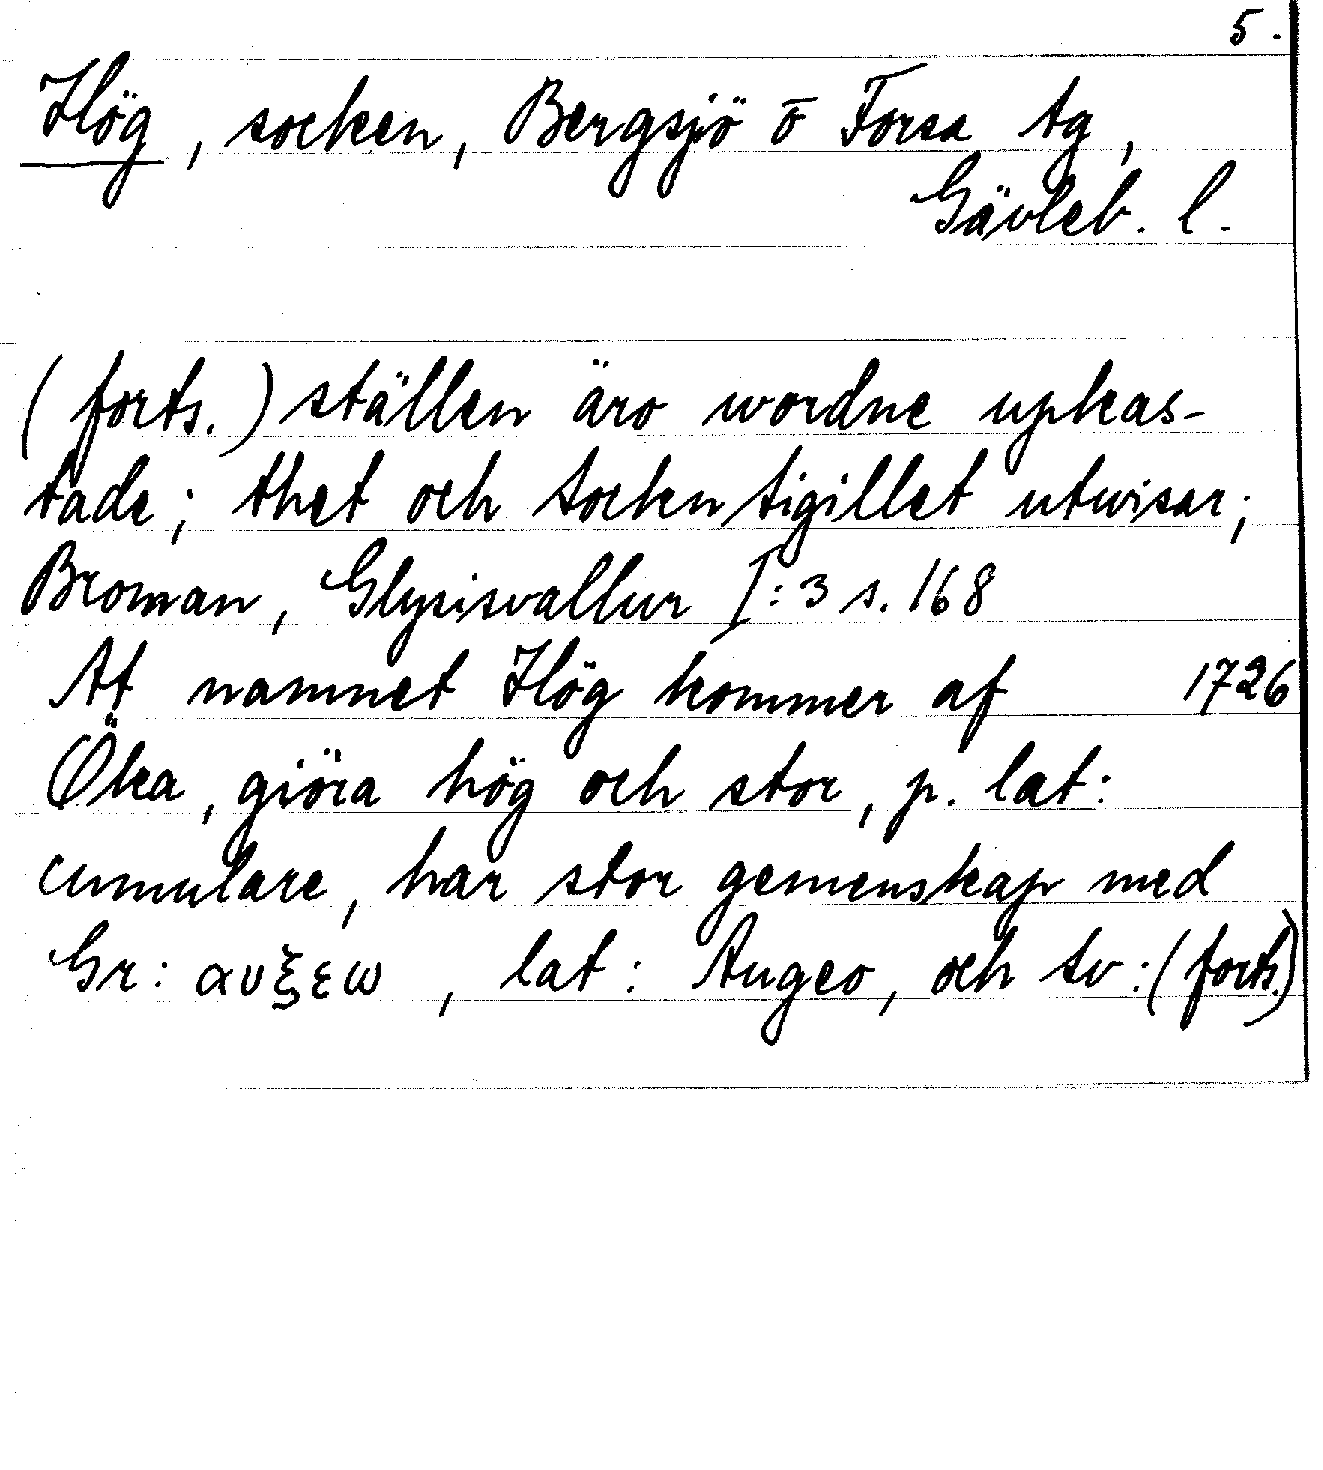 5.
Hög, socken, Bergsjö o Forsa tg,
Gävleb. l.
(forts.) ställen äro wordne upkas-
tade; thet och Socken sigillet utwisar;
Broman, Glysisvallur I:3 s. 168
At namnet Hög kommer af 1726
Öka, giöra hög och stor, p. lat:
cumulare, har stor gemenskap med
Gr: αυξεω , lat: Augeo, och sv: (forts.)